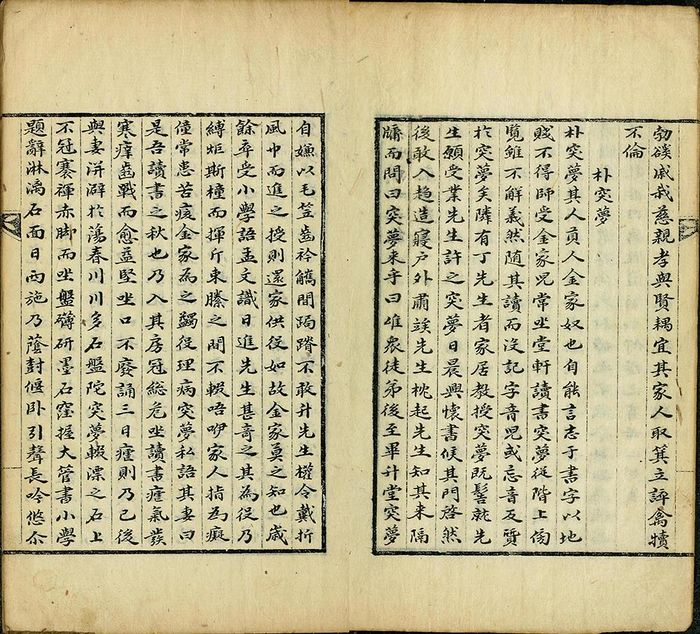 勃磎戚我慈親孝與賢耦宜其家人取箕立誶禽犢
不倫
朴突夢
朴突夢其人貟人金家奴也自能言志于書字以地
賤不得師受金家児常坐堂軒讀書突夢從階上傍
覽雖不解義然随其讀而沒記字音児或忘音反質
扵突夢矣隣有丁先生者家居教授突夢既髻就先
生願受業先生許之突夢日晨興懷書候其門啓然
後敢入趋造寢户外肅竢先生枕起先生知其来隔
牖而問曰突夢来乎曰唯衆徒弟後至畢升堂突夢
自嫌以毛笠齒衿觿間跼蹐不敢升先生權令戴折
風巾而進之授則還家供役如故金家莫之知也歲
餘卒受小學語孟文識日進先生甚奇之其為役乃
縛炬斯橦而揮斤束縢之間不輟唔咿家人指為癡
僮常患苦痎金家為之蠲役理病突夢私語其妻曰
是吾讀書之秋也乃入其房冠総危坐讀書瘧氣發
寒瘴齒戰而愈益堅坐口不廢誦三日瘧則乃已後
與妻洴澼扵蕩春川川多石盤陀突夢輟漂之石上
不冠褰褌赤脚而坐盤礴研墨石窪握大管書小學
題辭淋漓石而日西施乃蔭封偃卧引聲長吟悠尒